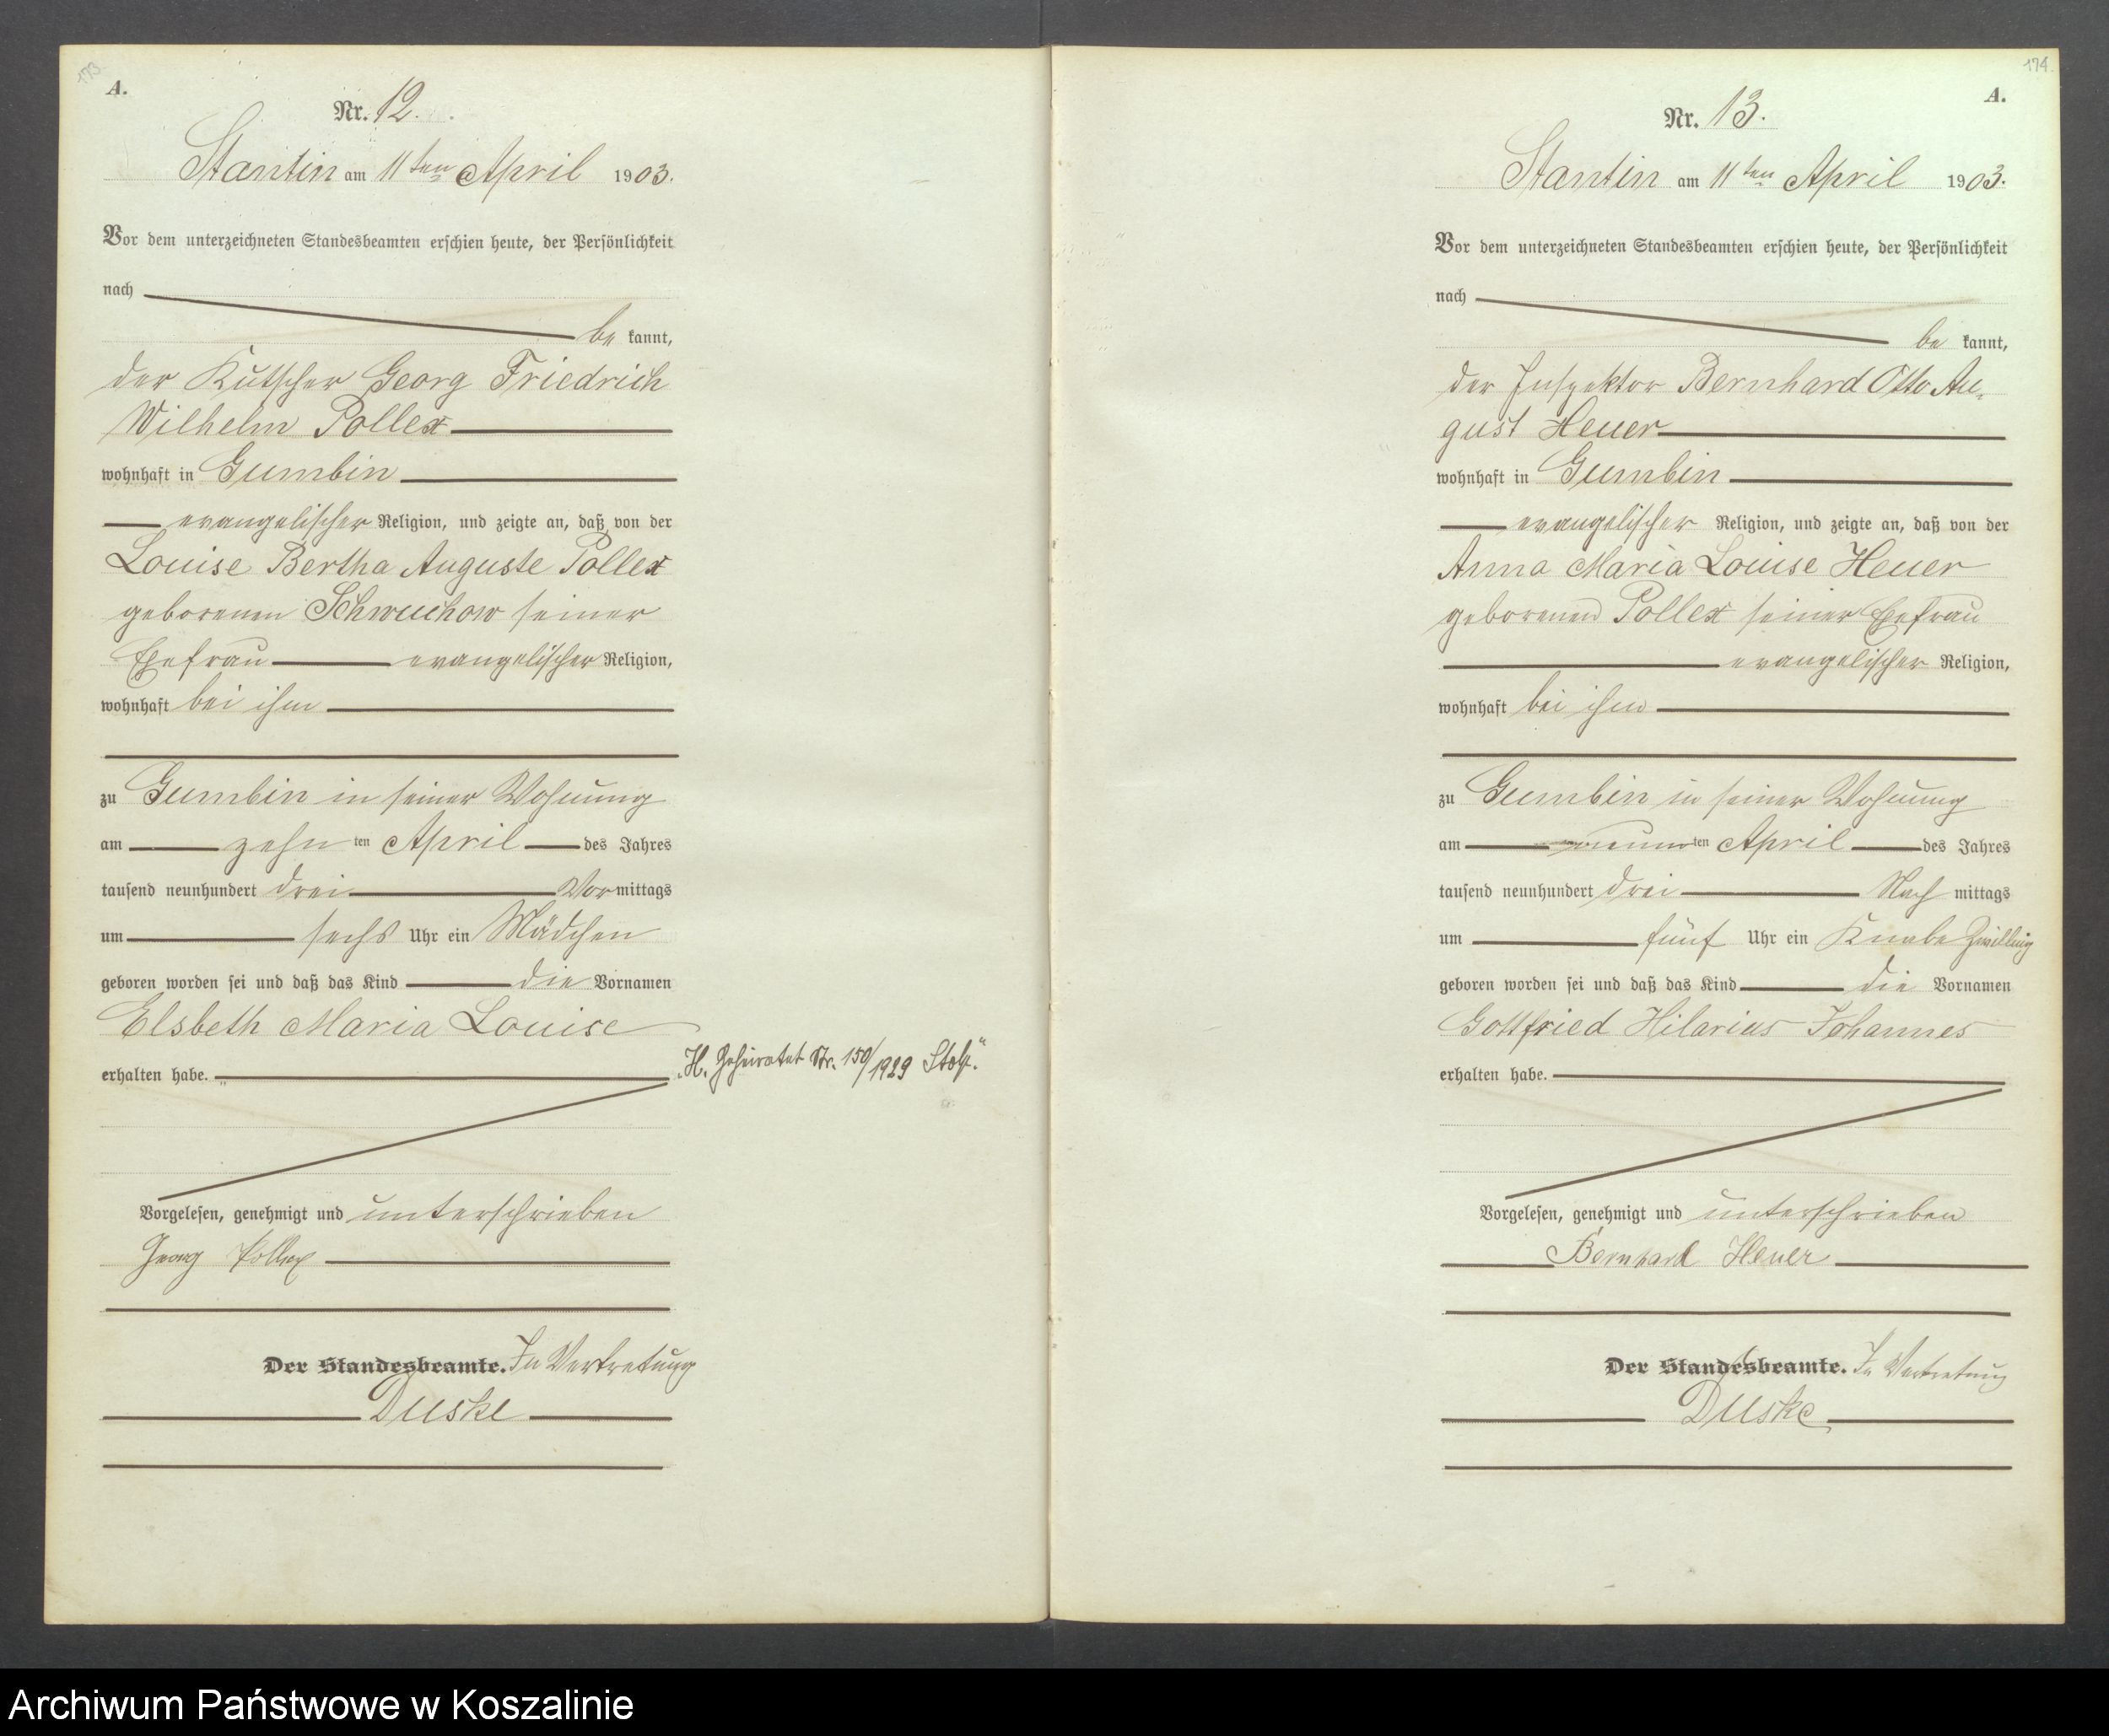 173.
A.
Nr. 12.
Stantin am 11ten April 1903.
Vor dem unterzeichneten Standesbeamten erschien heute, der Persönlichkeit
nach
be kannt,
der Kutscher Georg Friedrich
Wilhelm Pollex
wohnhaft in Gumbin
evangelischer Religion, und zeigte an, daß von der
Louise Bertha Auguste Pollex
geborenen Schwuchow seiner
Ehefrau evangelischer Religion,
wohnhaft bei ihm
zu Gumbin in seiner Wohnung
am zehn ten April des Jahres
tausend neunhundert drei Vormittags
um sechs Uhr ein Mädchen
geboren worden sei und daß das Kind die Vornamen
Elsbeth Maria Louise
erhalten habe.
"H. Geheiratet Nr. 150/1929 Stolp."
Vorgelesen, genehmigt und unterschrieben
Georg Pollex
Der Standesbeamte. In Vertretung
Duske
174.
A.
Nr. 13.
Stantin am 11ten April 1903.
Vor dem unterzeichneten Standesbeamten erschien heute, der Persönlichkeit
nach
be kannt,
der Inspektor Bernhard Otto Au-
gust Heuer
wohnhaft in Gumbin
evangelischer Religion, und zeigte an, daß von der
Anna Maria Louise Heuer
geborenen Pollex seiner Ehefrau
evangelischer Religion,
wohnhaft bei ihm
zu Gumbin in seiner Wohnung
am neun ten April des Jahres
tausend neunhundert drei Nach mittags
um fünf Uhr ein Knabe Zwilling
geboren worden sei und daß das Kind die Vornamen
Gottfried Hilarius Johannes
erhalten habe.
Vorgelesen, genehmigt und unterschrieben
Bernhard Heuer
Der Standesbeamte. In Vertretung
Duske
Archiwum Państwowe w Koszalinie